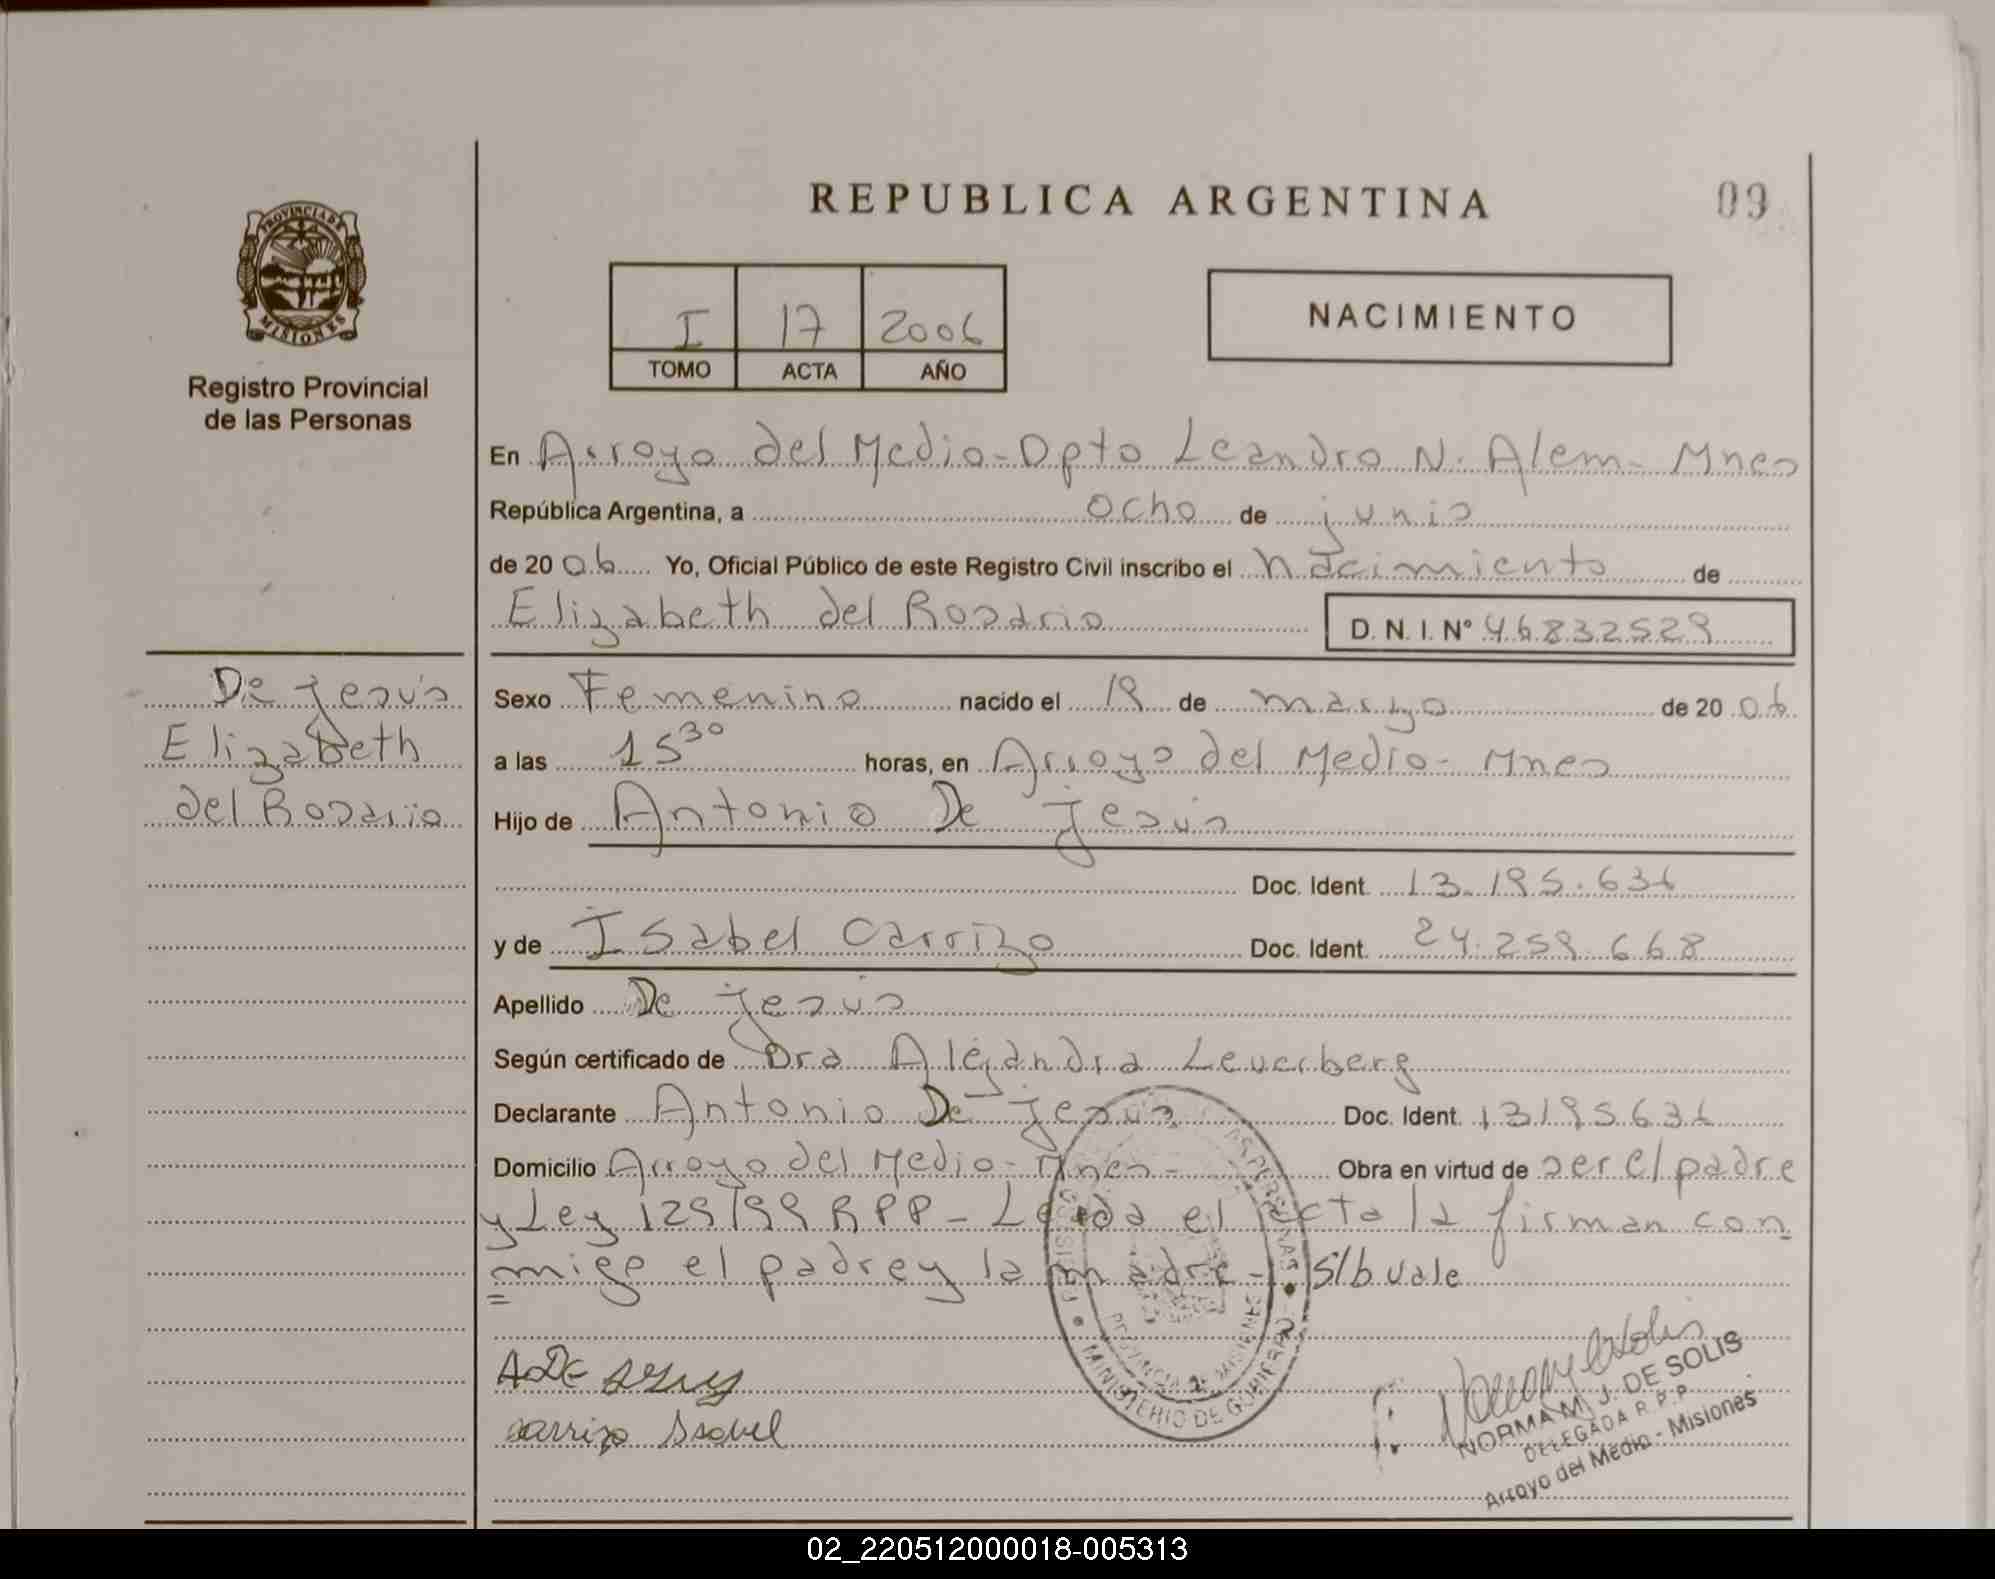 REPUBLICA ARGENTINA
09
PROVINCIA DE
MISIONES
Registro Provincial
de las Personas
I 17 2006
TOMO ACTA AÑO
NACIMIENTO
En Arroyo del Medio - Dpto Leandro N. Alem - Mnes
República Argentina, a ocho de junio
de 2006 Yo, Oficial Público de este Registro Civil inscribo el nacimiento de
Elizabeth del Rosario D. N. I. N° 46832529
De jesús
Elizabeth
del Rosario
Sexo Femenino nacido el 19 de marzo de 2006
a las 15 30 horas, en Arroyo del Medio - Mnes
Hijo de Antonio De jesús
Doc. Ident. 13.195.636
y de Isabel Carrizo Doc. Ident. 24.259.668
Apellido De jesús
Según certificado de Dra Alejandra Leverberg
Declarante Antonio De jesús Doc. Ident. 13195636
Domicilio Arroyo del Medio - Mnes - Obra en virtud de ser el padre
y Ley 129/99 RPP - Leida el acta la firman con
migo el padre y la madre - S/b vale
A DE
Carrizo Isabel
MINISTERIO DE GOBIERNO
PROVINCIA DE MISIONES
NORMA M. J. DE SOLIS
DELEGADA R.P.P.
Arroyo del Medio - Misiones
02_220512000018-005313